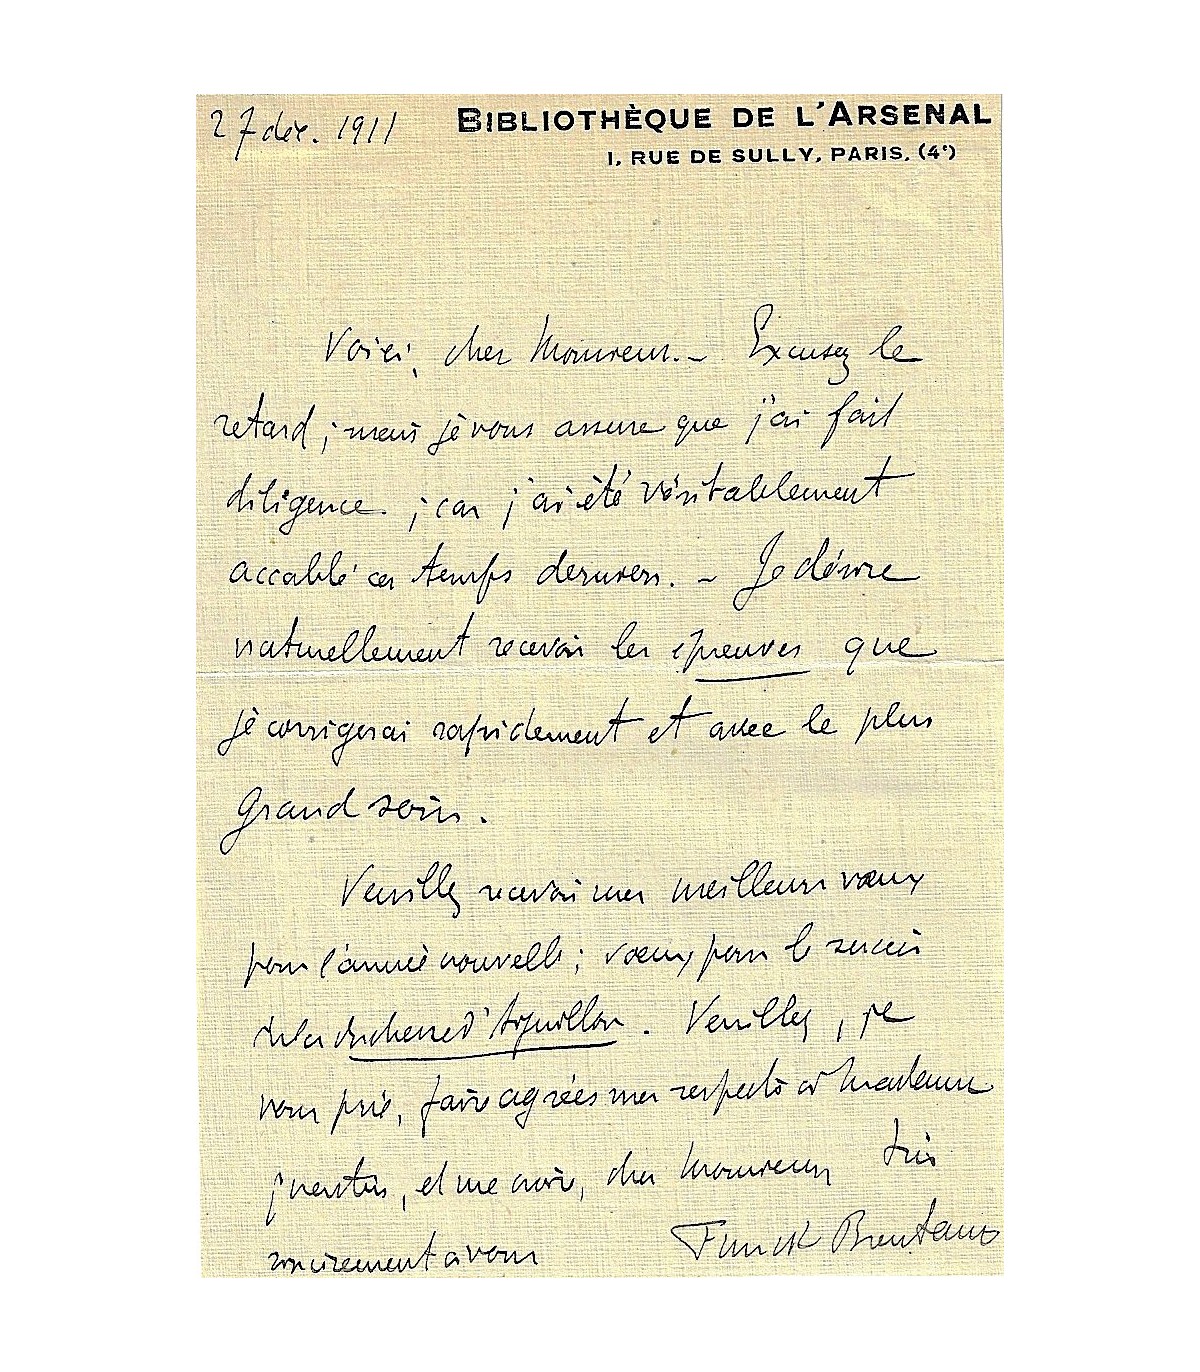 27 déc. 1911
BIBLIOTHÈQUE DE L'ARSENAL
1, RUE DE SULLY, PARIS, (4e)
Voici, cher Monsieur. – Excusez le
retard ; mais je vous assure que j'ai fait
diligence ; car j'ai été véritablement
accablé ces temps derniers. – Je désire
naturellement recevoir les épreuves que
je corrigerai rapidement et avec le plus
grand soin.
Veuillez recevoir mes meilleurs vœux
pour l'année nouvelle ; vœux pour le succès
de la duchesse d'Aiguillon. Veuillez, je
vous prie, faire agréer mes respects à Madame
et me croire, cher Monsieur très
sincèrement à vous
Funck Brentano